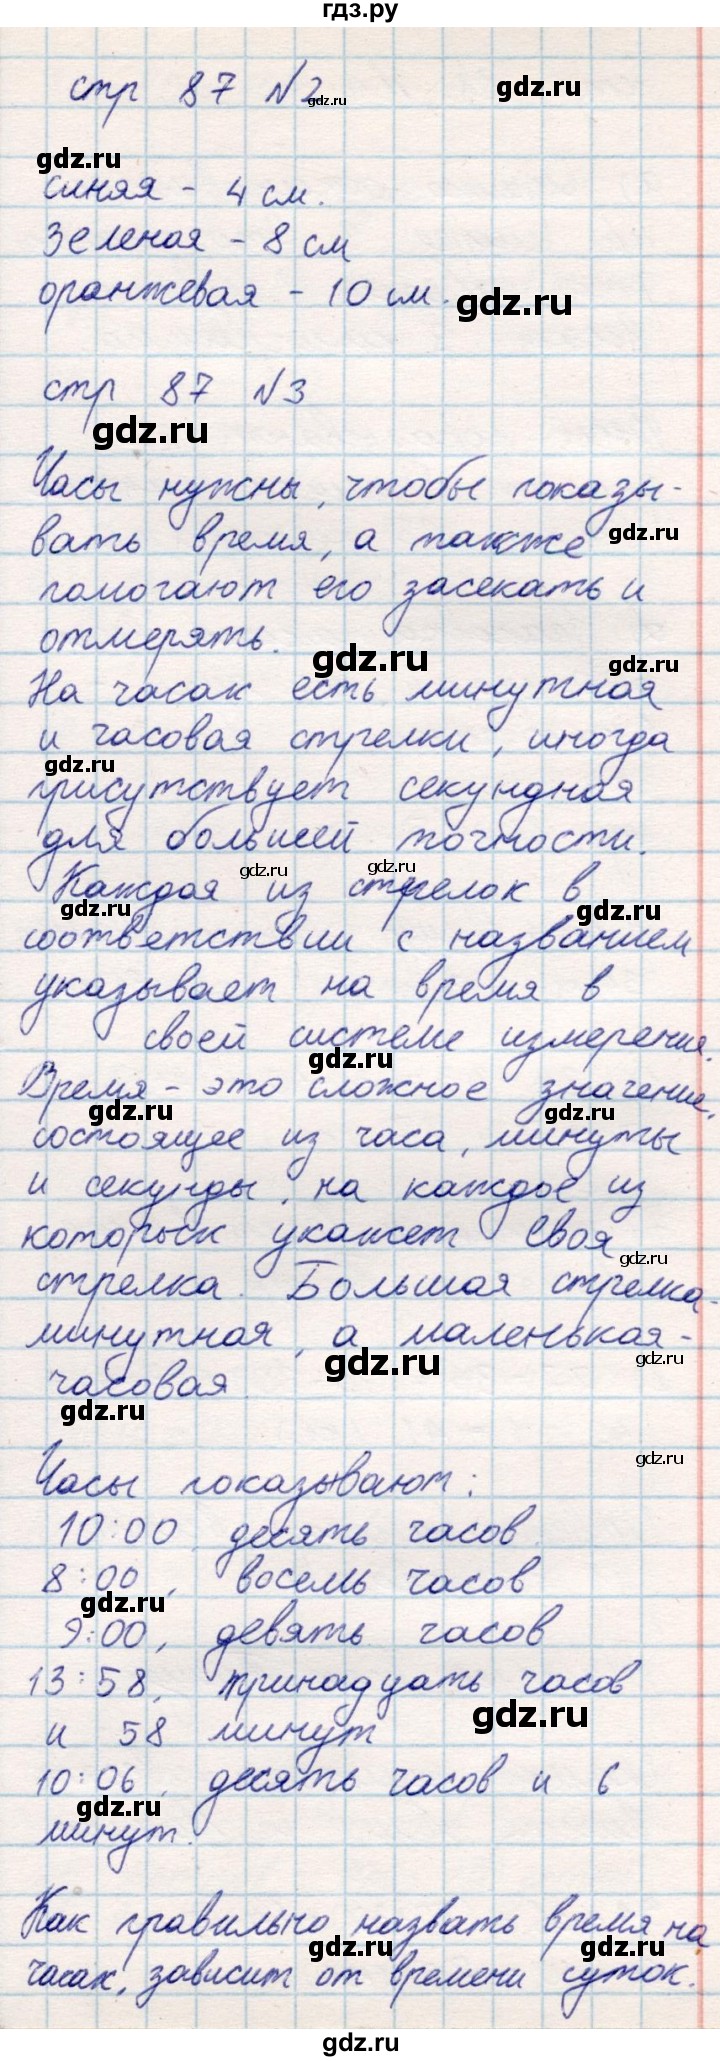 гдз.ру
стр 87 №2
gdz.ru
gdz.ru
gdz.ru
синяя - 4 см.
зеленая - 8 см
оранжевая - 10 см.
gdz.ru
стр 87 №3
gdz.ru
Часы нужны, чтобы показы-
gdz.ru
вать время, а также
помогают его засекать и
отмерять.
gdz.ru
gdz.ru
На часах есть минутная
и часовая стрелки, иногда
gdz.ru
присутствует секундная
для большей точности.
gdz.ru
gdz.ru
Каждая из стрелок в
gdz.ru
gdz.ru
соответствии с названием
указывает на время в
своей системе измерения.
gdz.ru
Время - это сложное значение,
gdz.ru
gdz.ru
состоящее из часа, минуты
и секунды, на каждое из
которых укажет своя
gdz.ru
стрелка. Большая стрелка -
минутная, а маленькая -
gdz.ru
gdz.ru
часовая.
gdz.ru
gdz.ru
Часы показывают:
10:00, десять часов
8:00, восемь часов
gdz.ru
9:00, девять часов
13:58, тринадцать часов
gdz.ru
и 58 минут
10:06, десять часов и 6
gdz.ru
минут.
Как правильно назвать время на
gdz.ru
gdz.ru
часах, зависит от времени суток.
gdz.ru